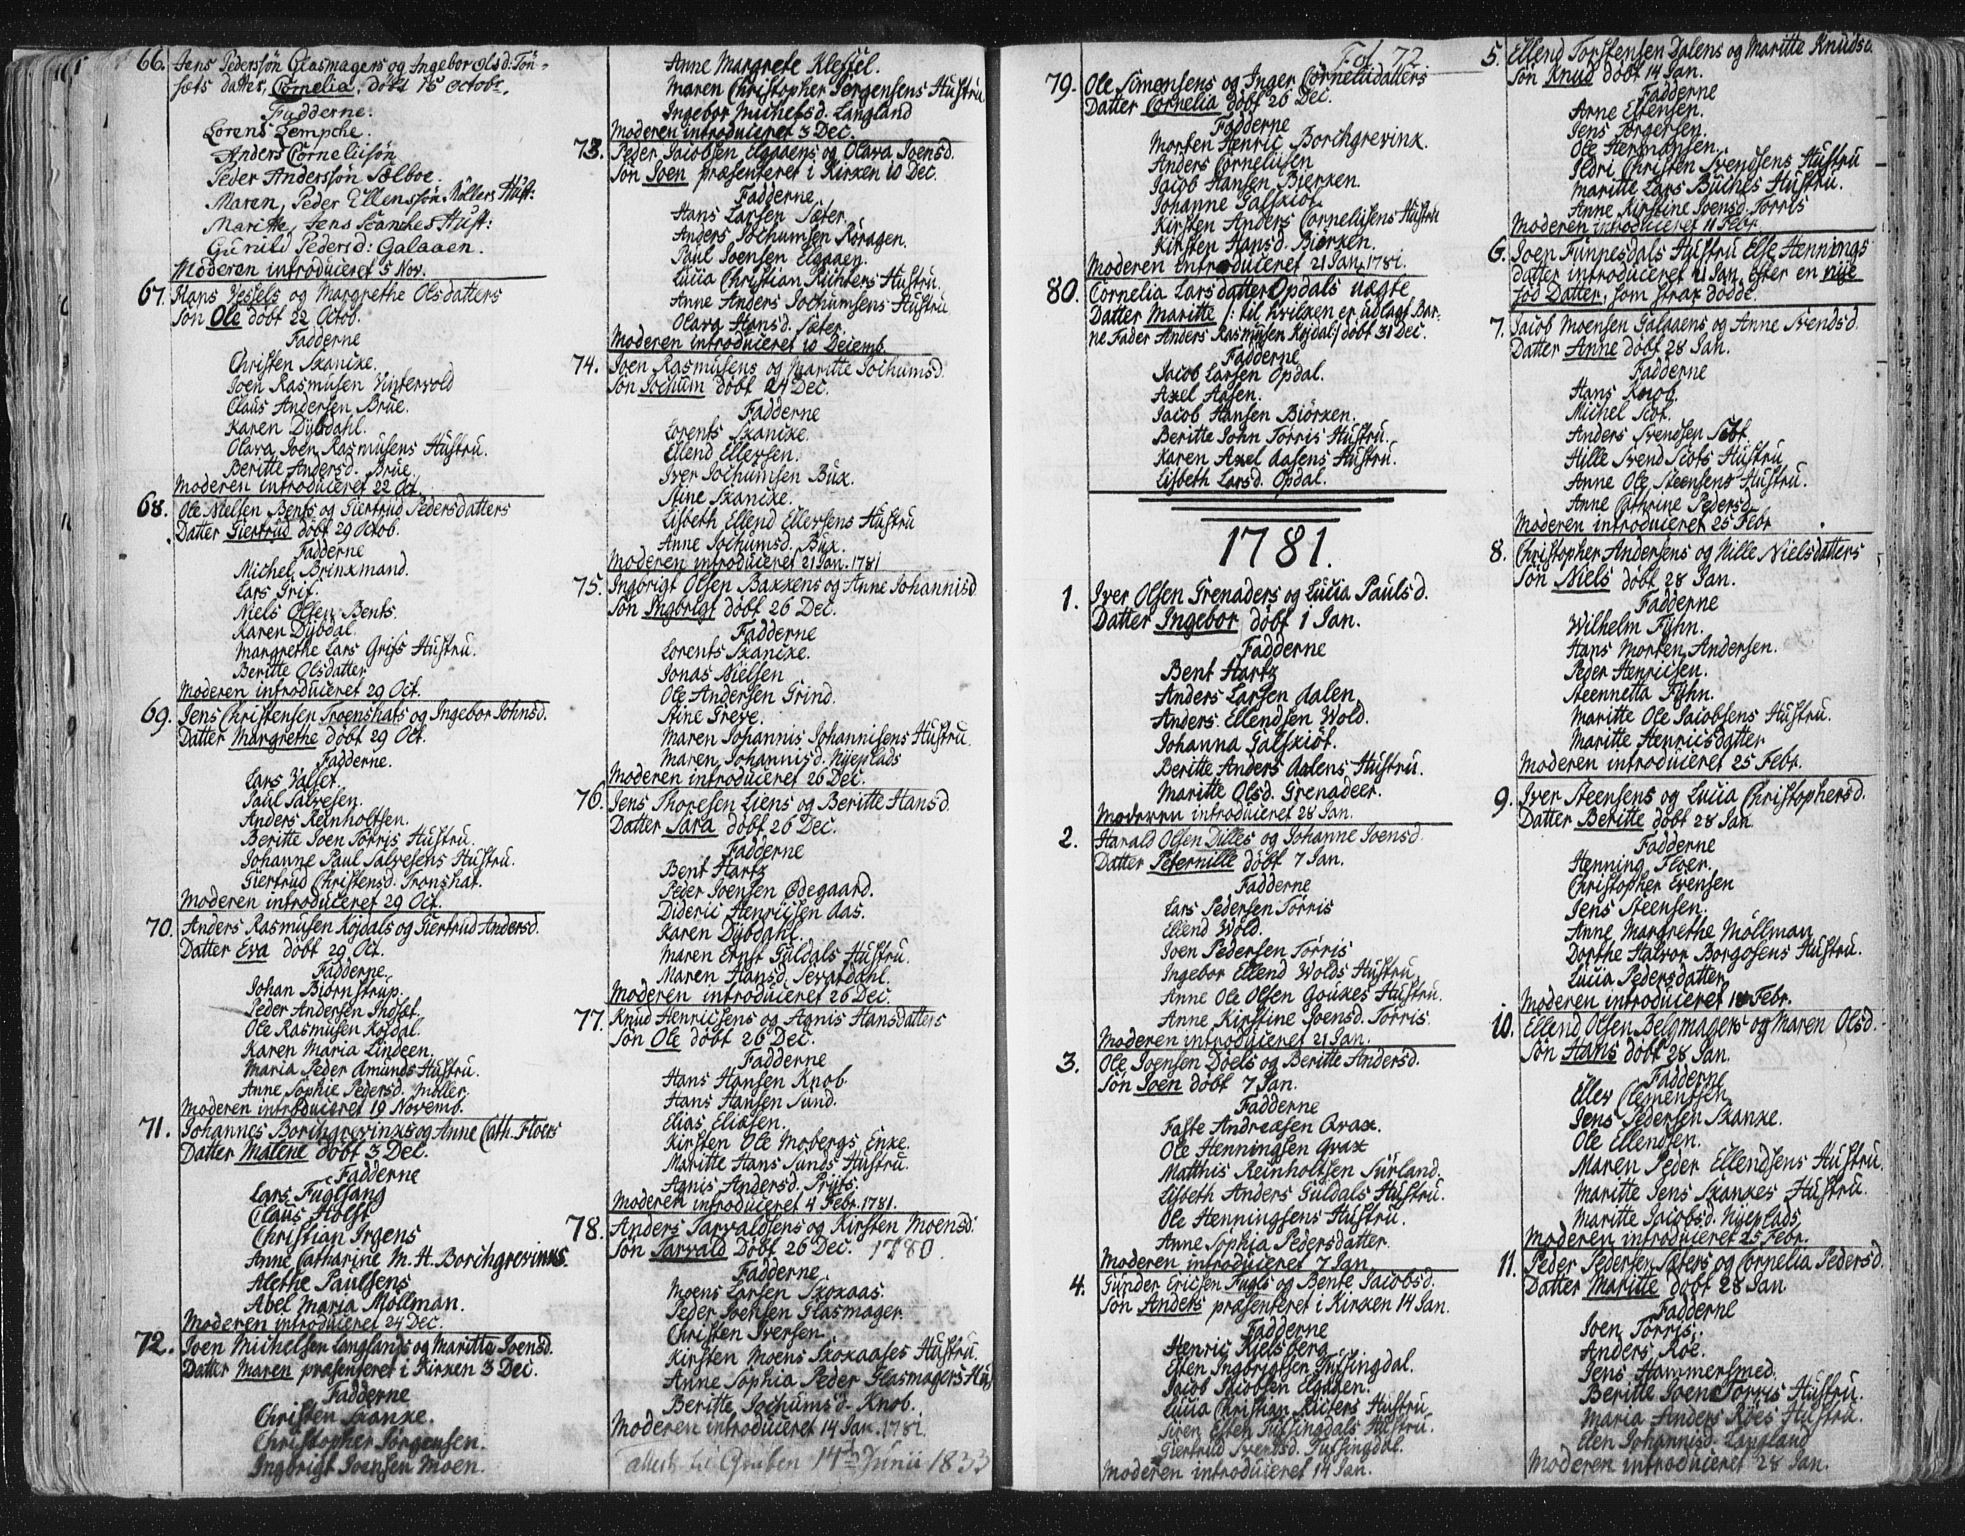 66. Jens Pedersøn Glasmagers og Ingebor Olsd: Tøn-
sæts datter, Cornelia, døbt 15 octobr.
Fadderne:
Lorens Lempche.
Anders Corneliisøn
Peder Andersøn Sælboe.
Maren, Peder Ellensøn Møllers Hust:
Maritte, Jens Scanches Hust:
Gunild Pedersd: Galaaen.
Moderen introduceret 5 Nov.
67. Hans Vessels og Margrethe Olsdatters
Søn Ole døbt 22 Octob.
Fadderne
Christen Skancke.
Joen Rasmusen Vintervold
Claus Andersen Brue.
Karen Dybdahl.
Olava Joen Rasmusens Hustru.
Beritte Andersd. Brue
Moderen introduceret 22 Oct.
68. Ole Nielsen Bents og Giertrud Pedersdatters
Datter Giertrud døbt 29 Octob.
Fadderne
Michel Brinkmand.
Lars Gris.
Niels Olsen Bents.
Karen Dybdal.
Margrethe Lars Griis Hustru.
Beritte Olsdatter
Moderen introduceret 29 Oct.
69. Jens Christensen Troenshats og Ingebor Johnsd.
Datter Margrethe døbt 29 Oct.
Fadderne.
Lars Valset.
Paul Salvesen.
Anders Reinholtsen.
Beritte Joen Torris Hustru.
Johanne Paul Salvesens Hustru.
Giertrud Christensd. Tronshat.
Moderen introduceret 29 Oct.
70. Anders Rasmusen Kojdals og Giertrud Andersd.
Datter Eva døbt 29 Oct.
Fadderne
Johan Biørnstrup.
Peder Andersen Indset.
Ole Rasmusen Kojdal.
Karen Maria Lindeen.
Maria Peder Amunds Hustru.
Anne Sophie Pedersd. Møller.
Moderen introduceret 19 Novemb.
71. Johannes Borchgrevinks og Anne Cath. Floers
Datter Malene døbt 3 Dec.
Fadderne
Lars Fuglsang
Claus Holst
Christian Irgens
Anne Catharine M. H. Borchgrevinks.
Alethe Paulsens
Abel Maria Möllman.
Moderen introduceret 24 Dec.
72. Joen Michelsen Langlands og Maritte Joensd.
Datter Maren præsenteret i Kirken 3 Dec.
Fadderne
Christen Skanke.
Christopher Jørgensen.
Ingbrigt Joensen Moen.
Anne Margrete Klessel.
Maren Christopher Jørgensens Hustru
Ingebor Michelsd. Langland
Moderen introduceret 3 Dec.
73. Peder Jacobsen Elgaaens og Olava Joensd.
Søn Joen præsenteret i Kirken 10 Dec.
Fadderne
Hans Larsen Sæter.
Anders Jochumsen Røragen.
Paul Joensen Elgaaen.
Lucia Christian Richters Hustru.
Anne Anders Jochumsens Hustru
Olava Hansd. Sæter.
Moderen introduceret 10 Decemb.
74. Joen Rasmusens og Maritte Jochumsd.
Søn Jochum døbt 24 Dec.
Fadderne
Lorents Skancke.
Ellend Ellevsen.
Iver Jochumsen Bux.
Stine Skancke.
Lisbeth Ellend Ellevsens Hustru
Anne Jochumsd. Bux.
Moderen introduceret 21 Jan. 1781
75. Ingbrigt Olsen Bakkens og Anne Johannisd.
Søn Ingbrigt døbt 26 Dec.
Fadderne
Lorents Skancke.
Jonas Nielsen
Ole Andersen Grind.
Stine Greve.
Maren Johannis Johannisens Hustru.
Maren Johannisd. Nyeplads
Moderen introduceret 26 Dec.
76. Jens Thoresen Liens og Beritte Hansd.
Datter Sara døbt 26 Dec.
Fadderne
Bent Hartz
Peder Joensen Ødegaard.
Dideric Henricsen Aas.
Karen Dybdahl.
Maren Ernst Guldals Hustru.
Maren Hansd. Sevatdahl.
Moderen introduceret 26 Dec.
77. Knud Henricsens og Agnis Hansdatters
Søn Ole døbt 26 Dec.
Fadderne
Hans Hansen Knob.
Hans Hansen Sund.
Elias Eliasen.
Kirsten Ole Mobergs Enke.
Maritte Hans Sunds Hustru.
Agnis Andersd. Priits.
Moderen introduceret 4 Febr. 1781.
78. Anders Tarvaldsens og Kirsten Moensd.
Søn Tarvald Døbt 26 Dec. 1780.
Fadderne
Moens Larsen Skoxaas.
Peder Joensen Glasmager.
Christen Iversen.
Kirsten Moens Skoxaases Hustru.
Anne Sophia Peder Glasmagers Hus
Beritte Jochumsd. Knob.
Moderen introduceret 14 Jan. 1781.
attest til Gruben 14de Junii 1833
Fol. 72.
79. Ole Simensens og Inger Corneliidatters
Datter Cornelia døbt 26 Dec.
Fadderne
Morten Henric Borchgrevink.
Anders Corneliisen
Jacob Hansen Bierken.
Johanne Galskiøt
Kirsten Anders Corneliisens Hustru
Kirsten Hansd. Biørken.
Moderen introduceret 21 Jan. 1781.
80. Cornelia Larsdatter Opdals uægte
Datter Maritte /: til hvilken er udlagt Bar-
ne Fader Anders Rasmusen Kojdal/ døbt 31 Dec.
Fadderne
Jacob Larsen Opdal.
Axel Aasen.
Jacob Hansen Biörken.
Beritte John Torris Hustru.
Karen Axel Aasens Hustru.
Lisbeth Larsd. Opdal.
1781.
1. Iver Olsen Grenaders og Lucia Paulsd.
Datter Ingebor døbt 1 Jan.
Fadderne
Bent Hartz
Anders Larsen Aalen
Anders Ellendsen Wold.
Johanna Galskiöt.
Beritte Anders Aalens Hustru.
Maritte Olsd. Grenadeer.
Moderen introduceret 28 Jan.
2. Harald Olsen Dilles og Johanne Joensd.
Datter Peternille døbt 7 Jan.
Fadderne
Lars Pedersen Torris
Ellend Wold.
Joen Pedersen Torris
Ingebor Ellend Wolds Hustru
Anne Ole Olsen Goukes Hustru.
Anne Kirstine Joensd. Torris.
Moderen introduceret 21 Jan.
3. Ole Joensen Döels og Beritte Andersd.
Søn Joen døbt 7 Jan.
Fadderne
Faste Andreæsen Qvax.
Ole Henningsen Qvax
Matthis Reinholtsen Surland.
Lisbeth Anders Guldals Hustru.
Ole Henningsens Hustru.
Anne Sophia Pedersdatter.
Moderen introduceret 7 Jan.
4. Gunder Ericsen Fugls og Bente Jacobsd.
Søn Anders præsenteret i Kirken 14 Jan.
Fadderne
Henric Kielsberg
Esten Ingbrigtsen Tufsingdal.
Jacob Jacobsen Elgaaen.
Lucia Christian Richters Hustru
Siren Esten Tufsingdals Hustru.
Giertrud Svendsd. Tufsingdal.
Moderen introduceret 14 Jan.
5. Ellend Torstensen Dalens og Maritte Knudsd.
Søn Knud døbt 14 Jan.
Fadderne
Arne Estensen.
Jens Jørgensen.
Ole Hermansen.
Sidri Christen Svendsens Hustru
Maritte Lars Buches Hustru.
Anne Kirstine Joensd. Torris
Moderen introduceret 11 Febr.
6. Joen Funnesdals Hustru Else Hennings-
datter introduceret 21 Jan. efter en nye
fød Datter, som strax døde.
7. Jacob Moensen Galaaens og Anne Svendsd.
Datter Anne døbt 28 Jan.
Fadderne
Hans Knob.
Michel Scot.
Anders Svendsen Scot.
Hille Svend Scots Hustru
Anne Ole Steensens Hustru.
Anne Cathrine Pedersd.
Moderen introduceret 25 Febr.
8. Christopher Andersens og Nille Nielsdatters
Søn Niels døbt 28 Jan.
Fadderne
Wilhelm Fyhn.
Hans Morten Andersen.
Peder Henricsen.
Steennetta Fyhn.
Maritte Ole Jacobsens Hustru.
Maritte Henricsdatter
Moderen introduceret 25 Febr.
9. Iver Steensens og Lucia Christophersd.
Datter Beritte døbt 28 Jan.
Fadderne
Henning Floer.
Christopher Evensen
Jens Steensen.
Anne Margrethe Möllman
Dorthe Halvor Borgosens Hustru.
Lucia Pedersdatter
Moderen introduceret 18 Febr.
10. Ellend Olsen Belgmagers og Maren Olsd.
Søn Hans døbt 28 Jan.
Fadderne
Ellev Clementsen
Jens Pedersen Skanke.
Ole Ellendsen.
Maren Peder Ellendsens Hustru.
Maritte Jens Skankes Hustru.
Maritte Jacobsd. Nyeplads
Moderen introduceret 25 Febr.
11. Peder Pedersen Sæters og Cornelia Pedersd.
Datter Maritte døbt 28 Jan
Fadderne
Joen Torris.
Anders Roe.
Jens Hammersmed.
Beritte Joen Torris Hustru.
Maria Anders Röes Hustru.
Elen Johannisd. Langland
Moderen introduceret 28 Jan.